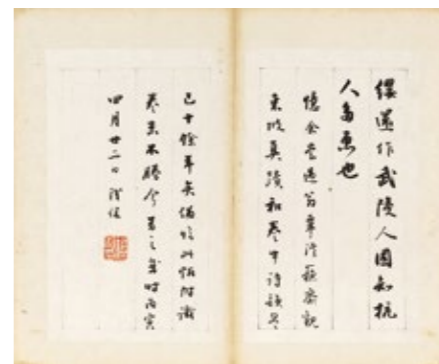 遂作武陵人固知杭
人多惠也
憶余昔過翁覃溪蘇齋觀
東坡真蹟和卷中詩韻
已十餘年矣偶臨此帖附識
卷末不勝今昔之感時丙寅
四月廿二日